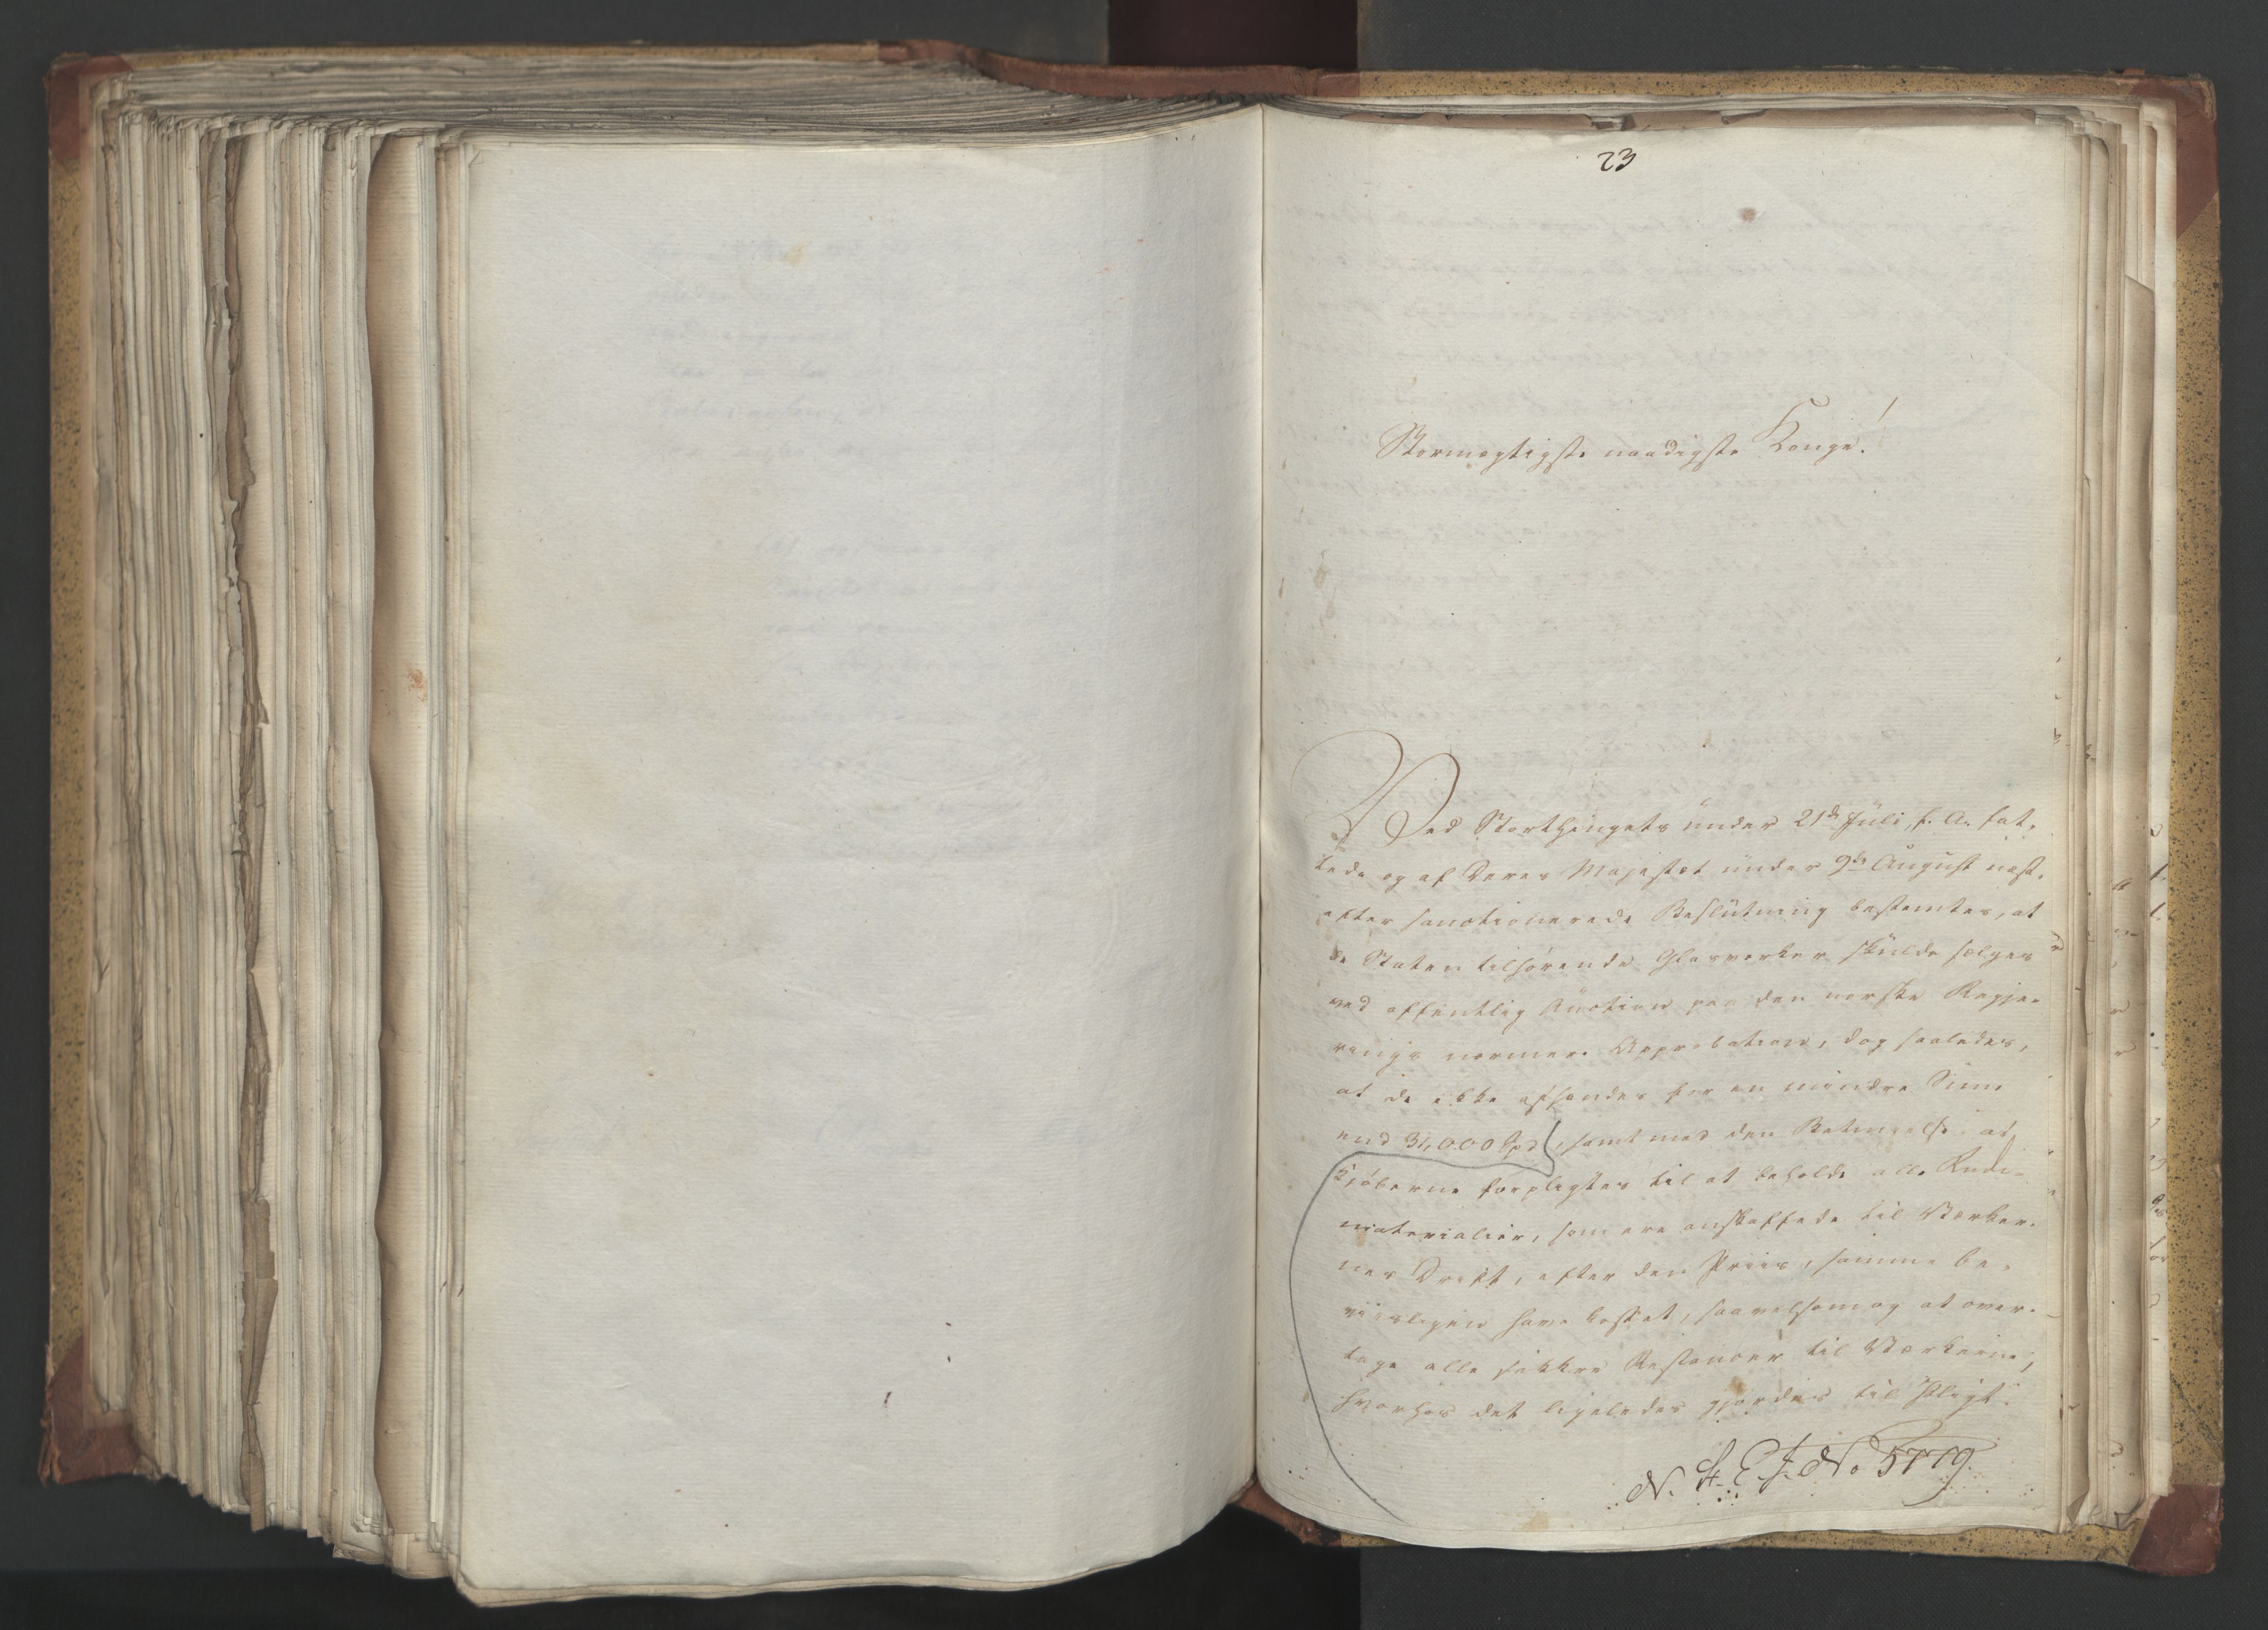 23
Stormægtigste naadigste Konge!
Ved Storthingets under 21de Juli f. A. fat-
tede og af Deres Majestæt under 9de August næst-
efter sanctionerede Beslutning bestemtes, at
de Staten tilhørende Glasværker skulde sælges
ved offentlig Auction paa den norske Regje-
rings nærmere Approbation, dog saaledes,
at de ikke afhændes for en mindre Sum
end 31,000 Spd, samt med den Betingelse at
Kjøberne forpligtes til at beholde alle Rudi-
materialier, som ere anskaffede til Værker-
nes Drift, efter den Priis, samme be-
viisligen have kostet, saavelsom og at over-
tage alle sikkre Restancer til Værkerne,
hvorhos det ligeledes gjordes til Pligt
N. St. E. J. No 5719